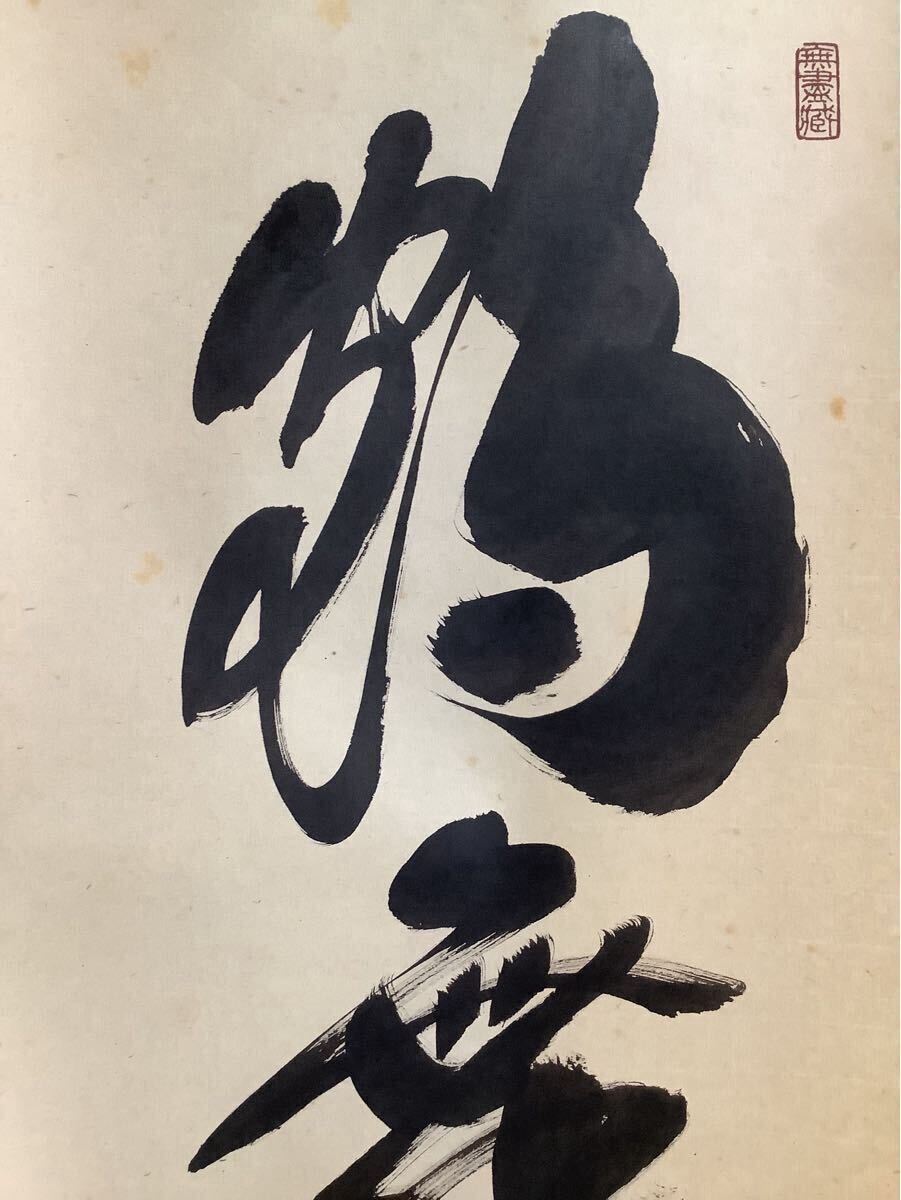 無盡藏
鶴舞